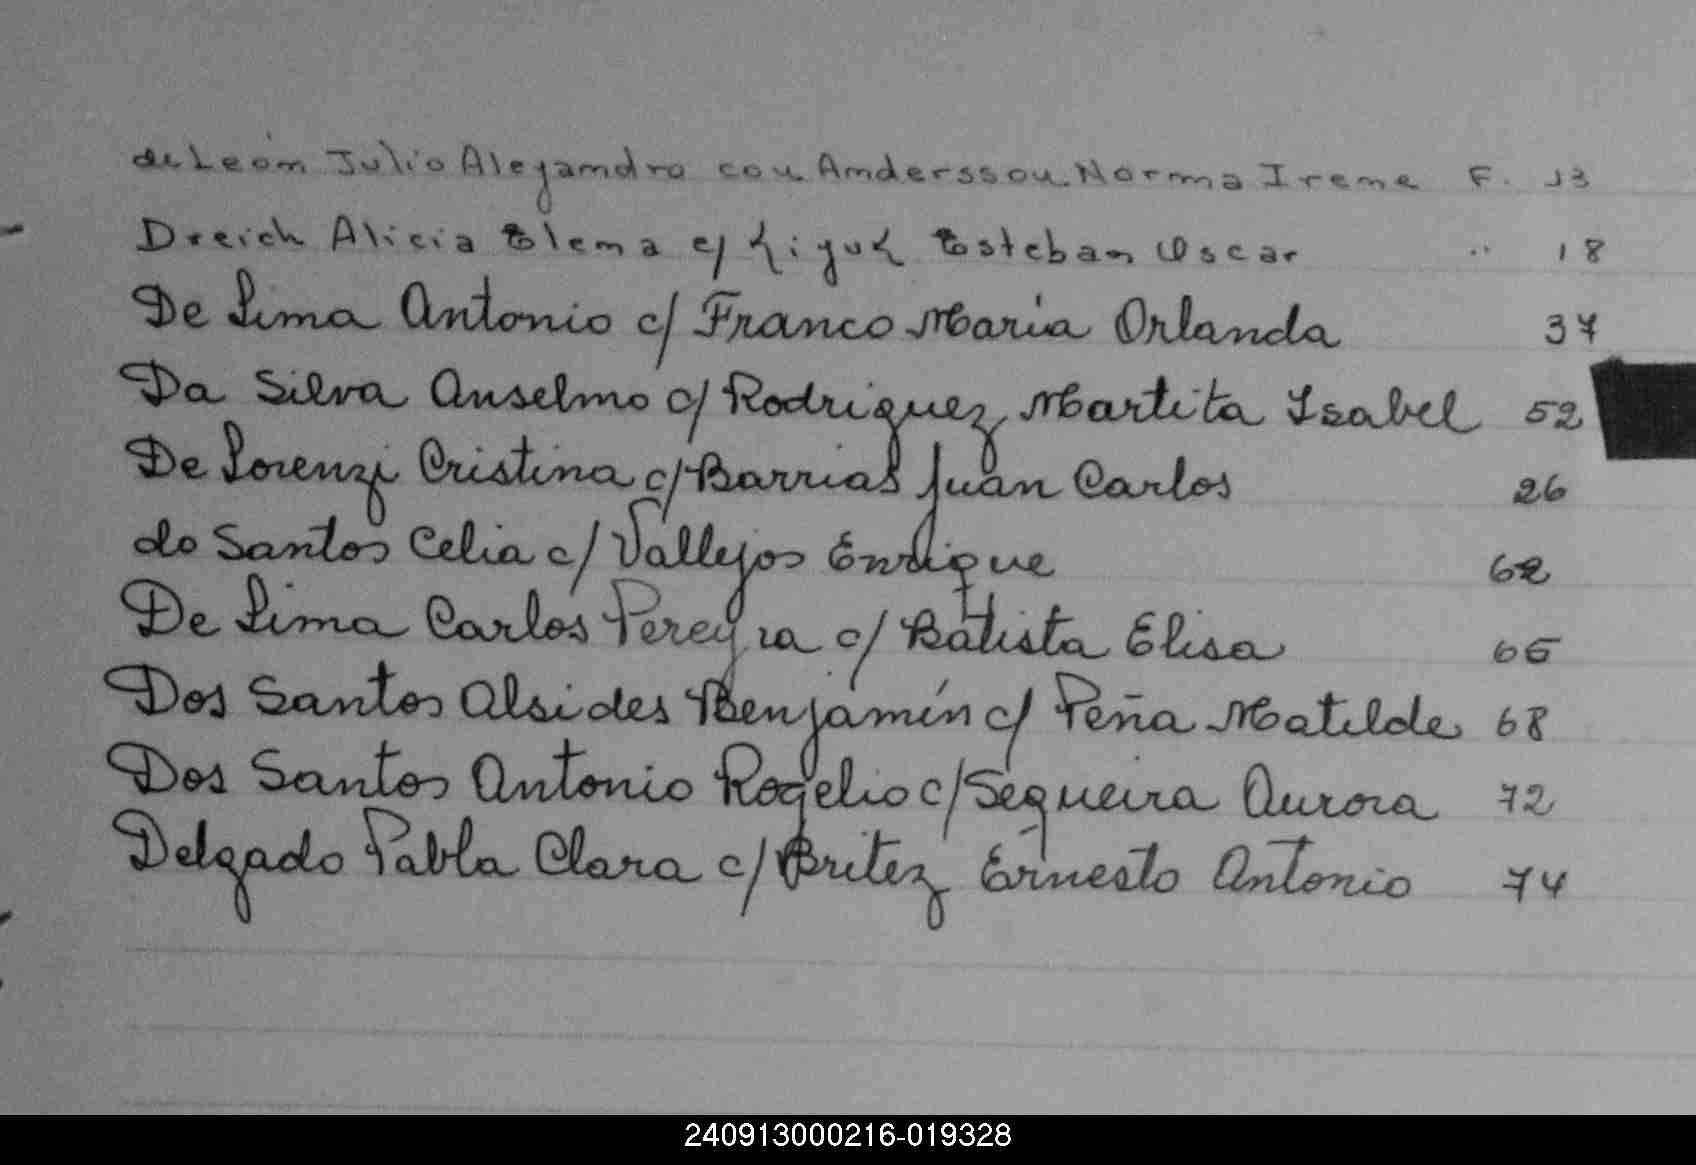 de León Julio Alejandro con Andersson Norma Irene F. 13
Dreich Alicia Elena c/ Esteban Oscar " 18
De Lima Antonio c/ Franco María Orlanda 37
Da Silva Anselmo c/ Rodriguez Martita Isabel 52
De Lorenzi Cristina c/ Barrias Juan Carlos 26
do Santos Celia c/ Vallejos Enrique 62
De Lima Carlos Pereyra c/ Batista Elisa 66
Dos Santos Alsides Benjamín c/ Peña Matilde 68
Dos Santos Antonio Rogelio c/ Sequeira Aurora 72
Delgado Pabla Clara c/ Britez Ernesto Antonio 74
240913000216-019328